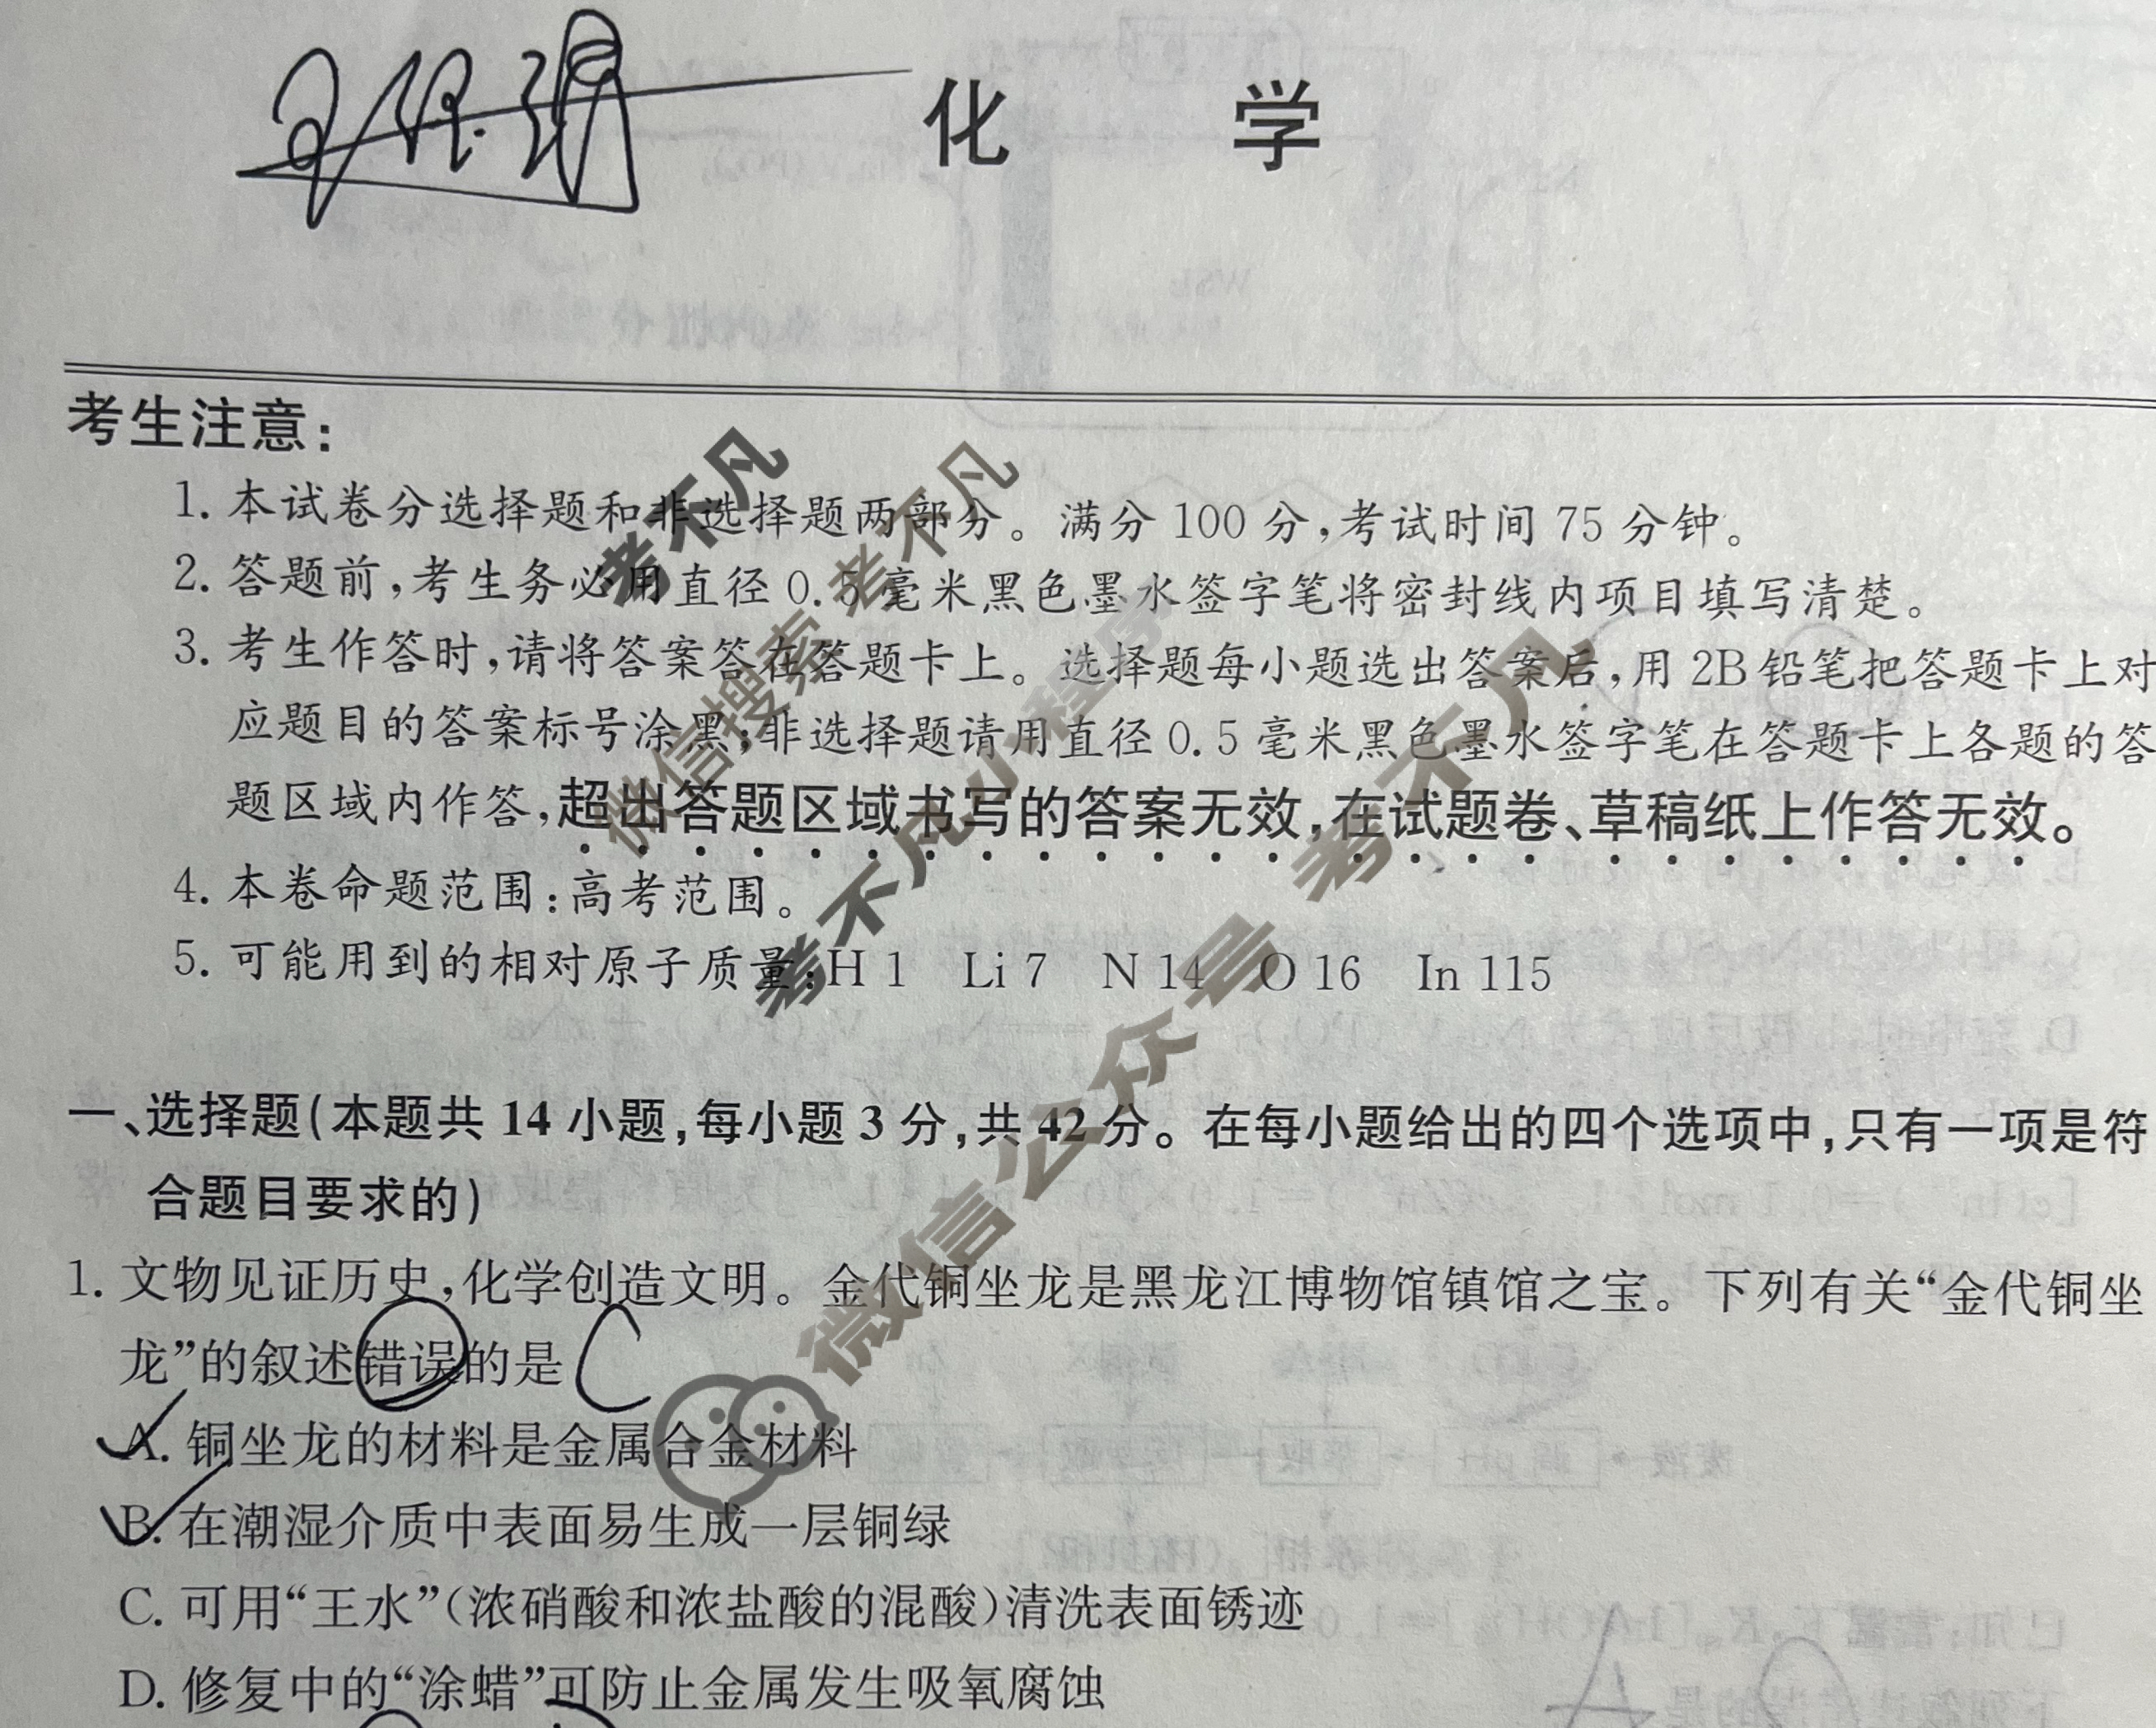 化 学
考生注意:
1. 本试卷分选择题和非选择题两部分。满分 100 分,考试时间 75 分钟。
2. 答题前,考生务必用直径 0.5 毫米黑色墨水签字笔将密封线内项目填写清楚。
3. 考生作答时,请将答案答在答题卡上。选择题每小题选出答案后,用 2B 铅笔把答题卡上对
应题目的答案标号涂黑;非选择题请用直径 0.5 毫米黑色墨水签字笔在答题卡上各题的答
题区域内作答,超出答题区域书写的答案无效,在试题卷、草稿纸上作答无效。
4. 本卷命题范围:高考范围。
5. 可能用到的相对原子质量:H 1 Li 7 N 14 O 16 In 115
一、选择题(本题共 14 小题,每小题 3 分,共 42 分。在每小题给出的四个选项中,只有一项是符
合题目要求的)
1. 文物见证历史,化学创造文明。金代铜坐龙是黑龙江博物馆镇馆之宝。下列有关“金代铜坐
龙”的叙述错误的是 C
A. 铜坐龙的材料是金属合金材料
B. 在潮湿介质中表面易生成一层铜绿
C. 可用“王水”(浓硝酸和浓盐酸的混酸)清洗表面锈迹
D. 修复中的“涂蜡”可防止金属发生吸氧腐蚀
考不凡
微信搜索 考不凡
考不凡小程序
微信公众号 考不凡